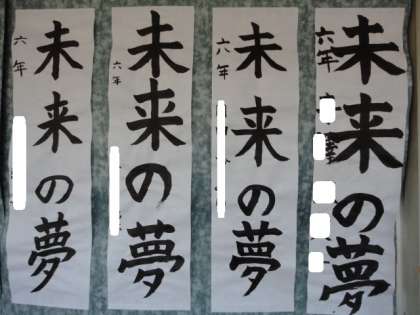 未来の夢
六年
未来の夢
六年
未来の夢
六年
未来の夢
六年